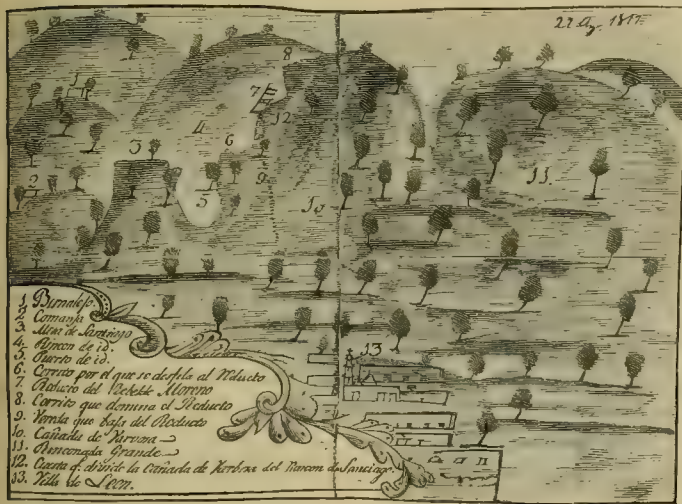 1817.
8
7
1
12
4
3
6
2
9
11.
5
10
13
1
2 Comanja
3 Mesa de Santiago
4 Rincon de id.
5 Puerto de id.
6 Cerrito por el que se desfila al Reducto
7 Reducto del Rebelde Moreno
8 Cerrito que domina el Reducto
9 que baja del Reducto
10. Cañada de
11. Rinconada Grande
12. Cuesta q. divide la Cañada de del Rincon de Santiago.
13. Villa de Leon.